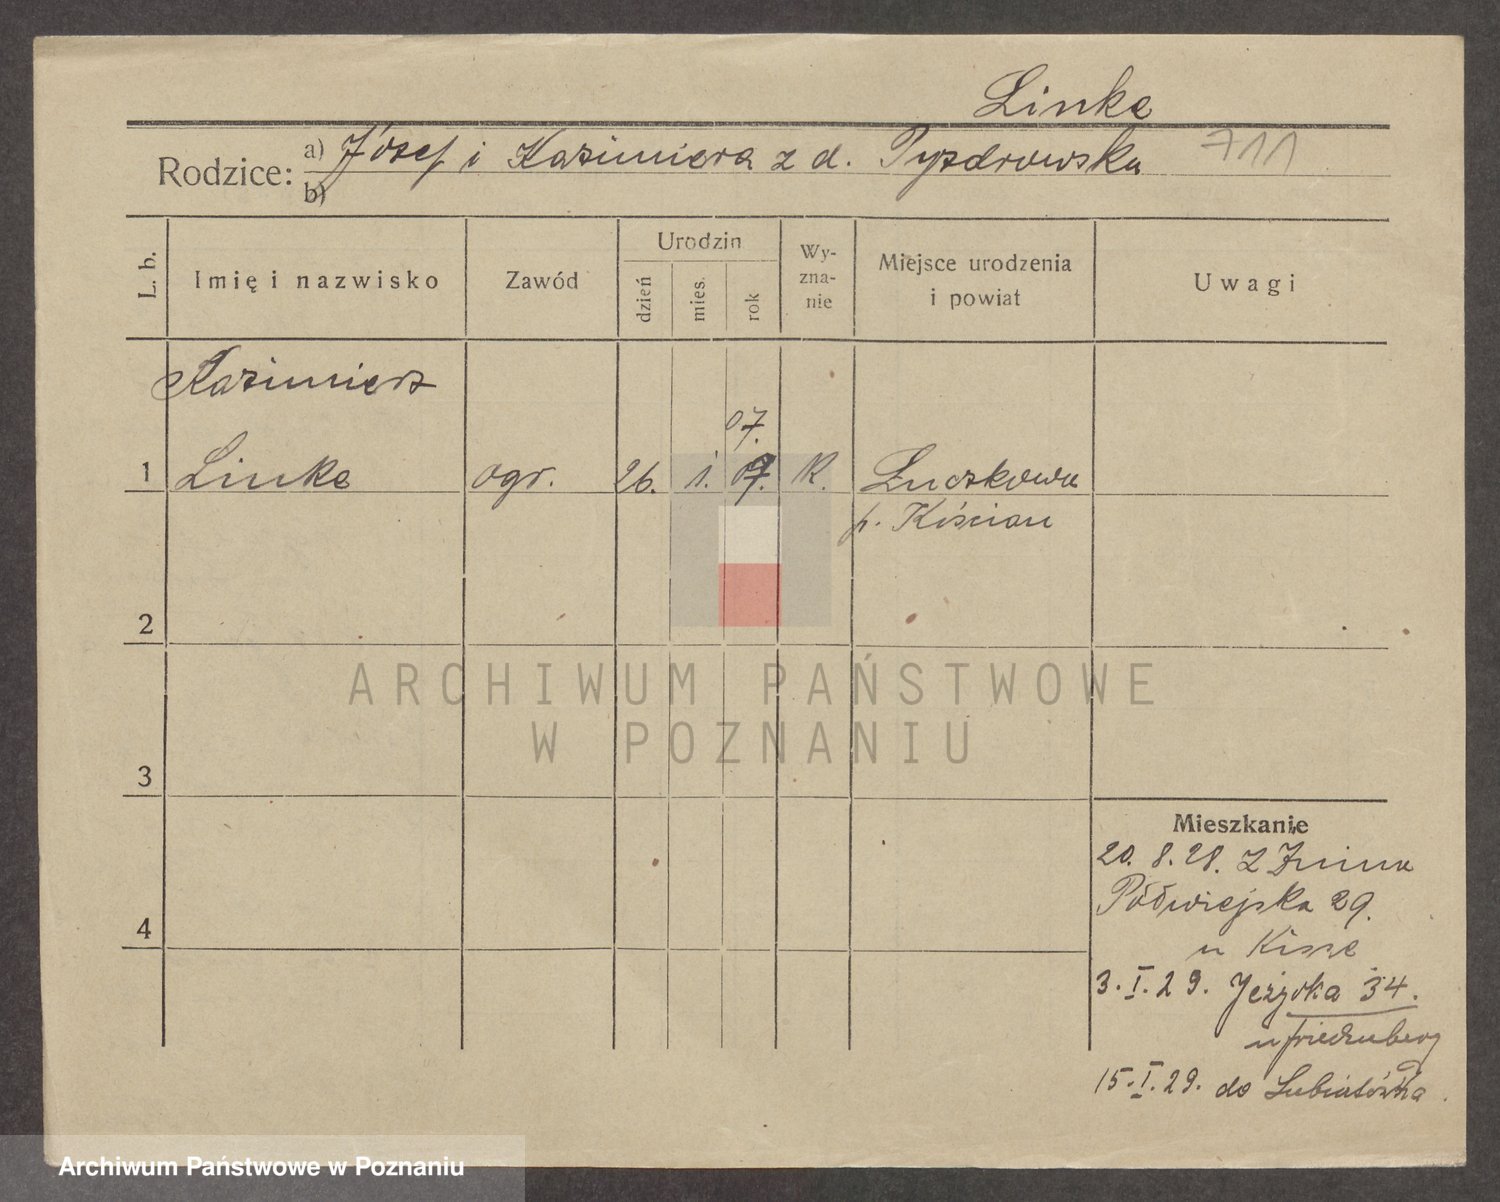 Linke
Rodzice: a) Józef i Kazimiera z d. Pyzdrowska 711
b)
L. b. Imię i nazwisko Zawód Urodzin dzień mies. rok Wy-zna-nie Miejsce urodzenia i powiat Uwagi
Kazimierz
07.
1 Linke ogr. 26. 1. 07. K. Łuczkowa
p. Kościan
2
ARCHIWUM PAŃSTWOWE
W POZNANIU
3
Mieszkanie
20. 8. 28. z Żnina
Półwiejska 29.
u Kisse
4
3. I. 29. Jeżycka 34.
u Friedenberg
15. I. 29. do Lubiatówka.
Archiwum Państwowe w Poznaniu